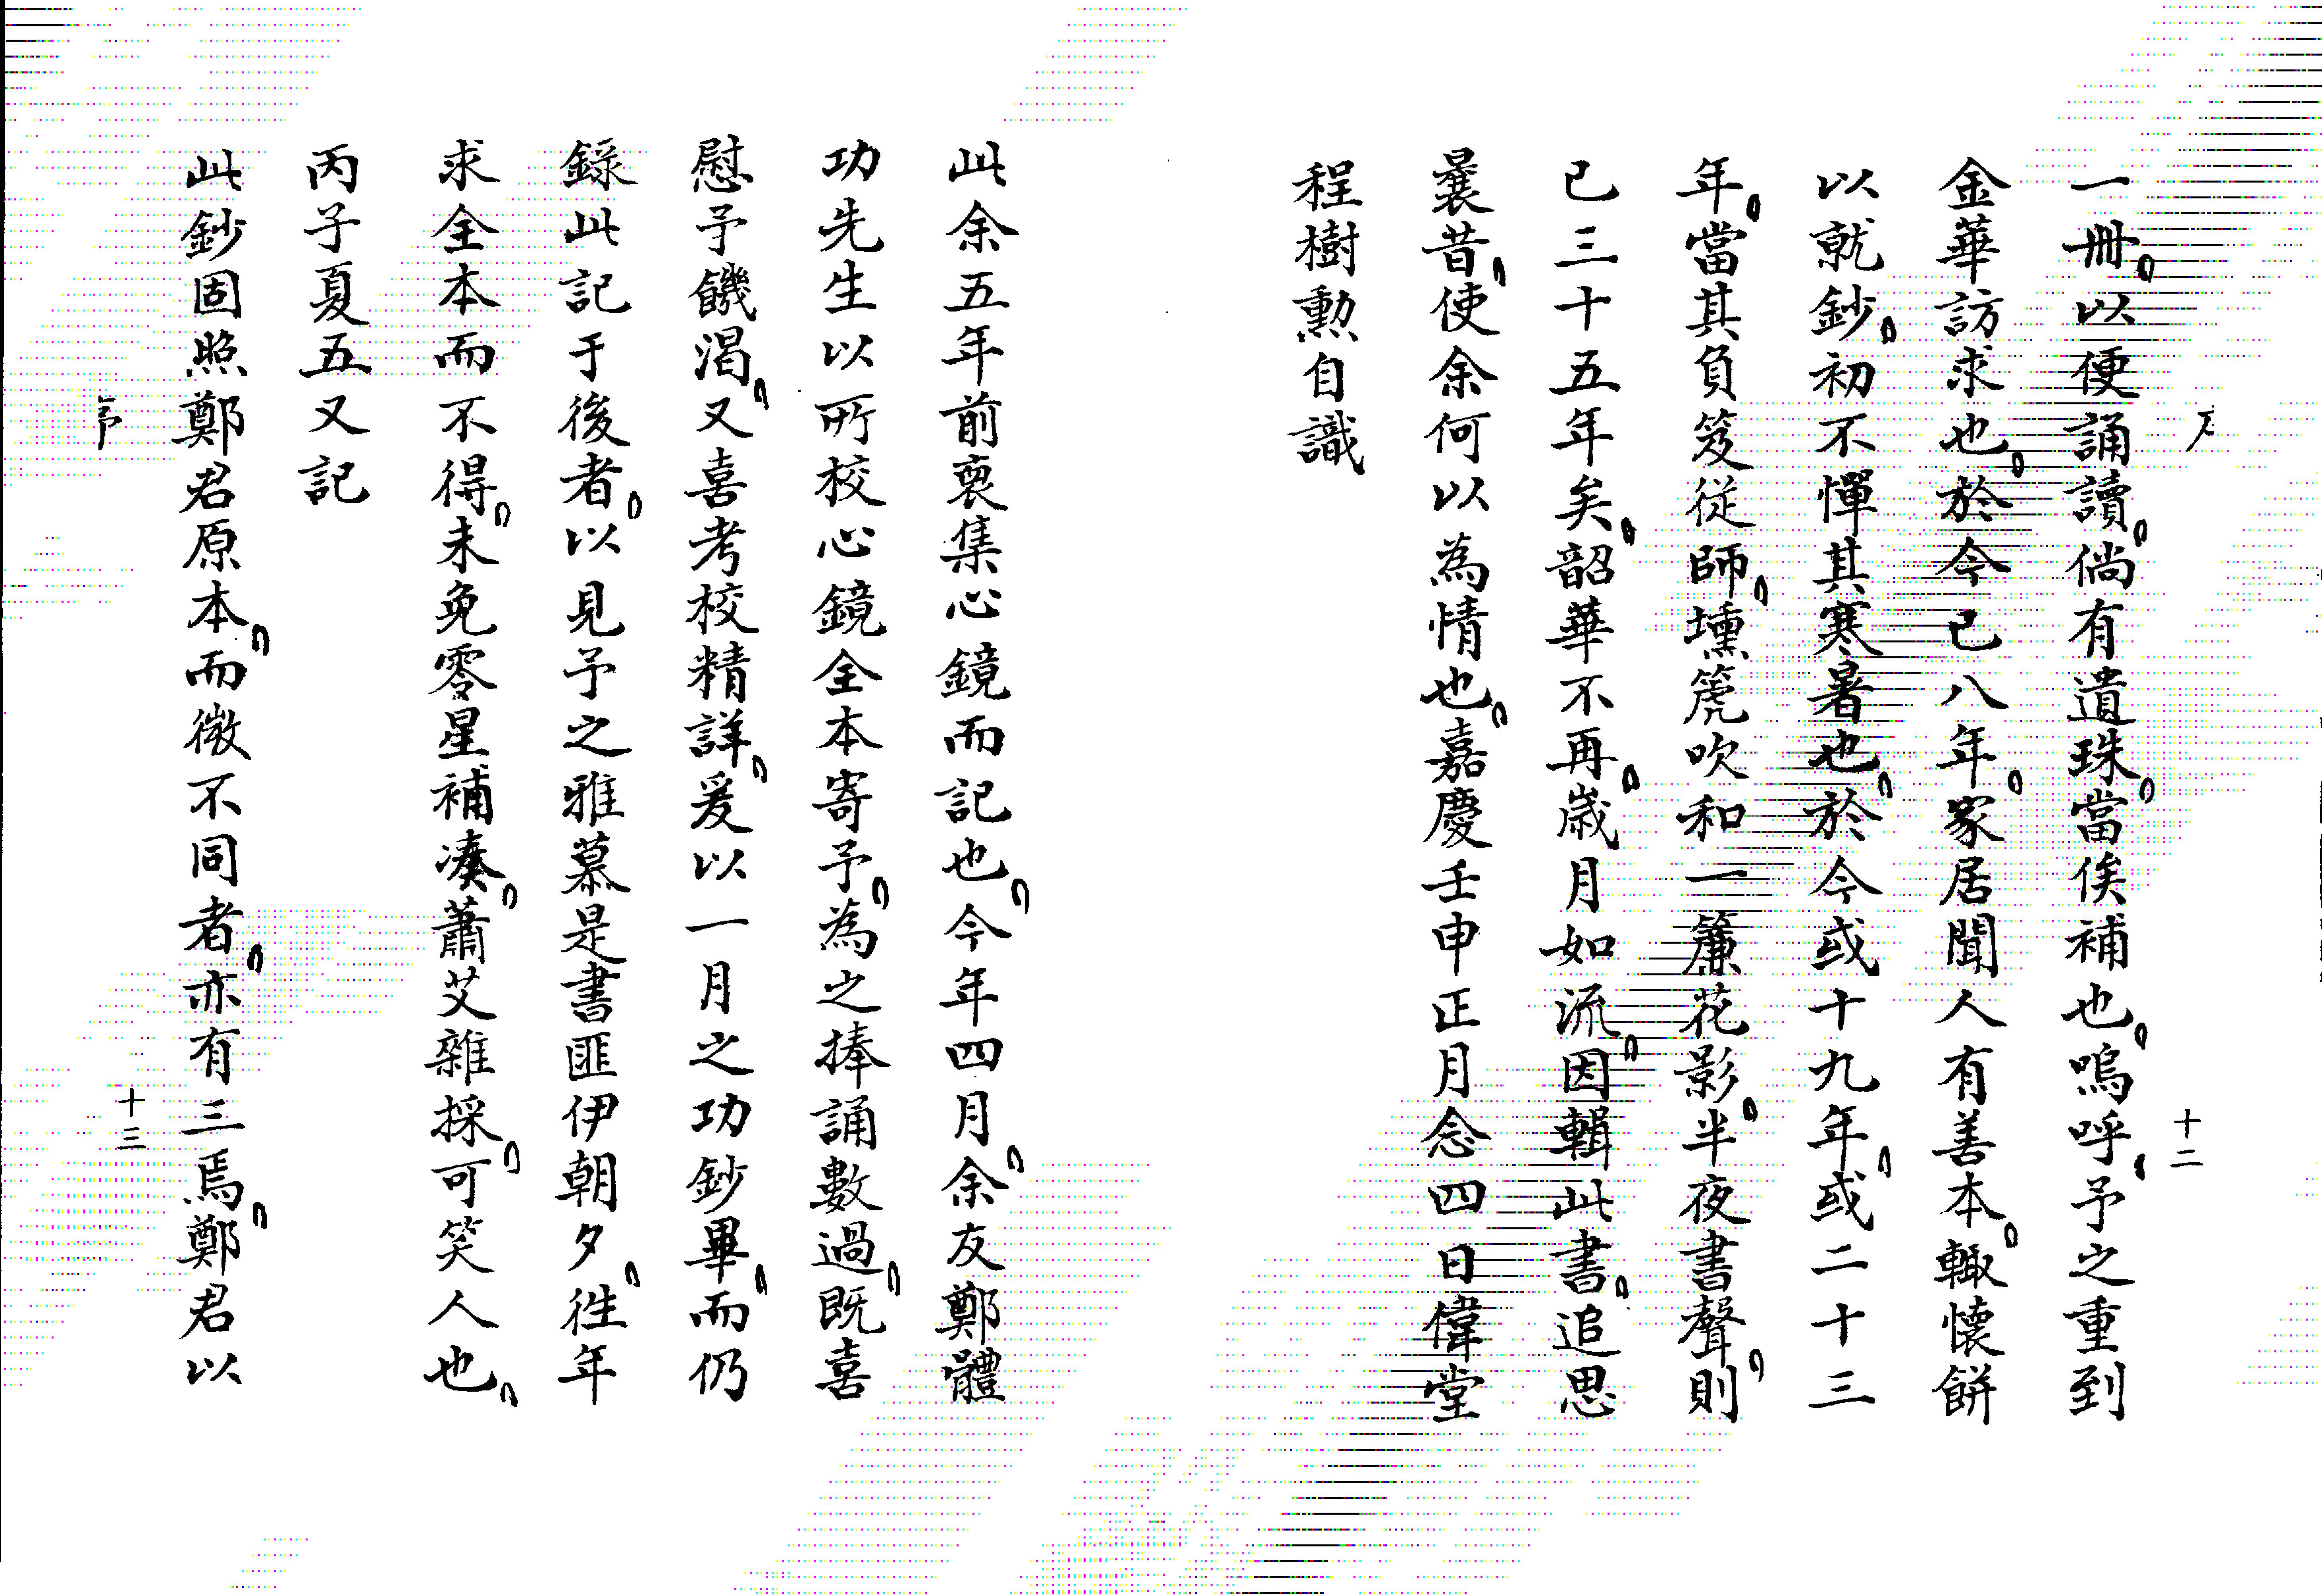 十二
一冊。以便誦讀。倘有遺珠。當俟補也。嗚呼。予之重到
金華訪求也。於今已八年。家居聞人有善本。輙懷餅
以就鈔。初不憚其寒暑也。於今或十九年。或二十三
年。當其負笈從師。壎篪吹和。一簾花影。半夜書聲。則
已三十五年矣。韶華不再。歲月如流。因輯此書。追思
曩昔。使余何以為情也。嘉慶壬申正月念四日偉堂
程樹勲自識
此余五年前裒集心鏡而記也。今年四月。余友鄭體
功先生以所校心鏡全本寄予。為之捧誦數過。既喜
慰予饑渴。又喜考校精詳。爰以一月之功鈔畢。而仍
錄此記于後者。以見予之雅慕是書匪伊朝夕。徃年
求全本而不得。未免零星補湊。蕭艾雜採。可笑人也。
丙子夏五又記
此鈔固照鄭君原本。而微不同者。亦有三焉。鄭君以
十三